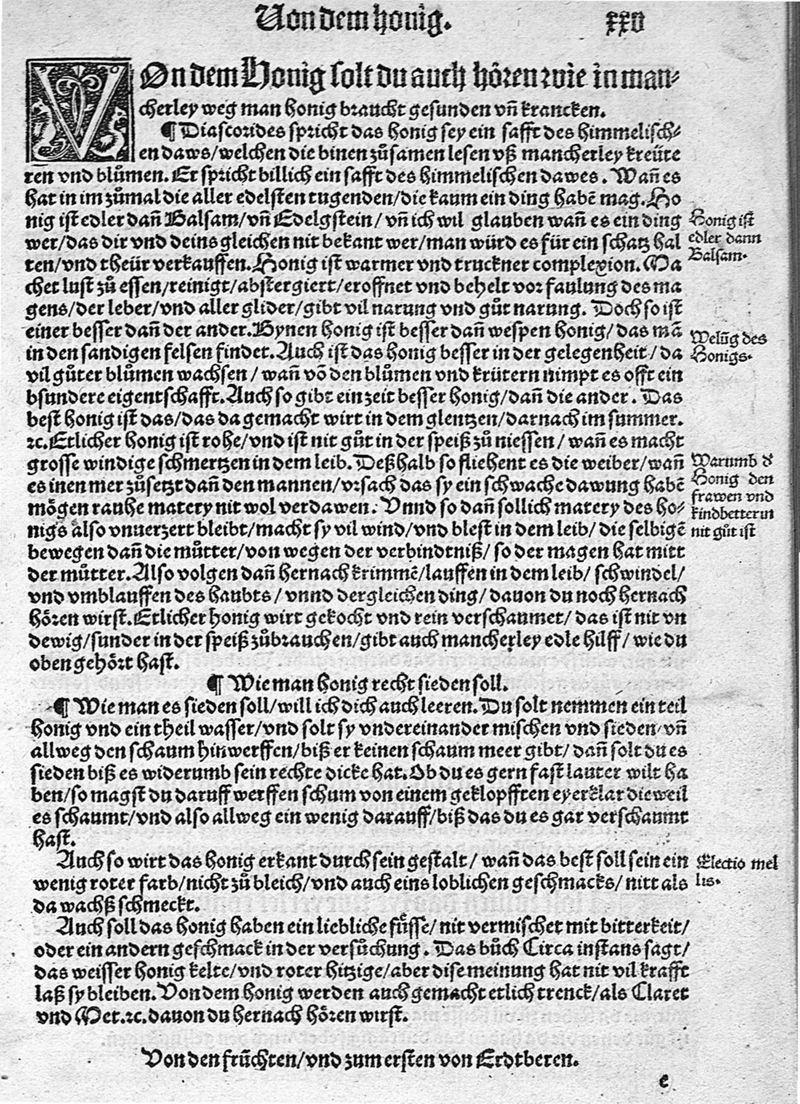 Von dem honig.
xxv
VOn dem Honig solt du auch hören wie in man-
cherley weg man honig braucht gesunden vñ krancken.
¶ Diascorides spricht das honig sey ein safft des himmelisch-
en daws/welchen die binen zůsamen lesen vß mancherley kreüte
ren vnd blůmen. Er spricht billich ein safft des himmelischen dawes. Wañ es
hat in im zůmal die aller edelsten tugenden/die kaum ein ding habẽ mag. Ho
nig ist edler dañ Balsam/vñ Edelgstein/vñ ich wil glauben wañ es ein ding
wer/das dir vnd deins gleichen nit bekant wer/man würd es für ein schatz hal
ten/vnd theür verkauffen. Honig ist warmer vnd truckner complexion. Ma
chet lust zů essen/reinigt/abstergiert/eroffnet vnd behelt vor faulung des ma
gens/der leber/vnd aller glider/gibt vil narung vnd gůt narung. Doch so ist
einer besser dañ der ander. Bynen honig ist besser dañ wespen honig/das mã
in den sandigen felsen findet. Auch ist das honig besser in der gelegenheit/da
vil gůter blůmen wachsen/wañ võ den blůmen vnd krütern nimpt es offt ein
bsundere eigentschafft. Auch so gibt ein zeit besser honig/dañ die ander. Das
best honig ist das/das da gemacht wirt in dem glentzen/darnach im summer.
ꝛc. Etlicher honig ist rohe/vnd ist nit gůt in der speiß zů niessen/wañ es macht
grosse windige schmertzen in dem leib. Deßhalb so fliehent es die weiber/wañ
es inen mer zůsetzt dañ den mannen/vrsach das sy ein schwache dawung habẽ
mögen rauhe matery nit wol verdawen. Vnnd so dañ sollich matery des ho-
nigs also vnuerzert bleibt/macht sy vil wind/vnd blest in dem leib/die selbigẽ
bewegen dañ die můtter/von wegen der verbindtniß/so der magen hat mitt
der můtter. Also volgen dañ hernach krimmẽ/lauffen in dem leib/schwindel/
vnd vmblauffen des haubts/vnnd dergleichen ding/dauon du noch hernach
hören wirst. Etlicher honig wirt gekocht vnd rein verschaumet/das ist nit vn
dewig/sunder in der speiß zůbrauchen/gibt auch mancherley edle hilff/wie du
oben gehört hast.
¶ Wie man honig recht sieden soll.
¶ Wie man es sieden soll/will ich dich auch leeren. Du solt nemmen ein teil
honig vnd ein theil wasser/vnd solt sy vndereinander mischen vnd sieden/vñ
allweg den schaum hinwerffen/biß er keinen schaum meer gibt/dañ solt du es
sieden biß es widerumb sein rechte dicke hat. Ob du es gern fast lauter wilt ha
ben/so magst du daruff werffen schum von einem geklopfften eyerklar dieweil
es schaumt/vnd also allweg ein wenig darauff/biß das du es gar verschaumt
hast.
Auch so wirt das honig erkant durch sein gestalt/wañ das best soll sein ein
wenig roter farb/nicht zů bleich/vnd auch eins loblichen geschmacks/nitt als
da wachß schmeckt.
Auch soll das honig haben ein liebliche süsse/nit vermischet mit bitterkeit/
oder ein andern geschmack in der versůchung. Das bůch Circa instans sagt/
das weisser honig kelte/vnd roter hitzige/aber dise meinung hat nit vil krafft
laß sy bleiben. Von dem honig werden auch gemacht etlich trenck/als Claret
vnd Met.ꝛc. dauon du hernach hören wirst.
Von den früchten/vnd zum ersten von Erdtberen.
e
Honig ist
edler dann
Balsam.
Welũg des
Honigs.
Warumb d̓
Honig den
frawen vnd
kindbetterin
nit gůt ist
Electio mel
lis.